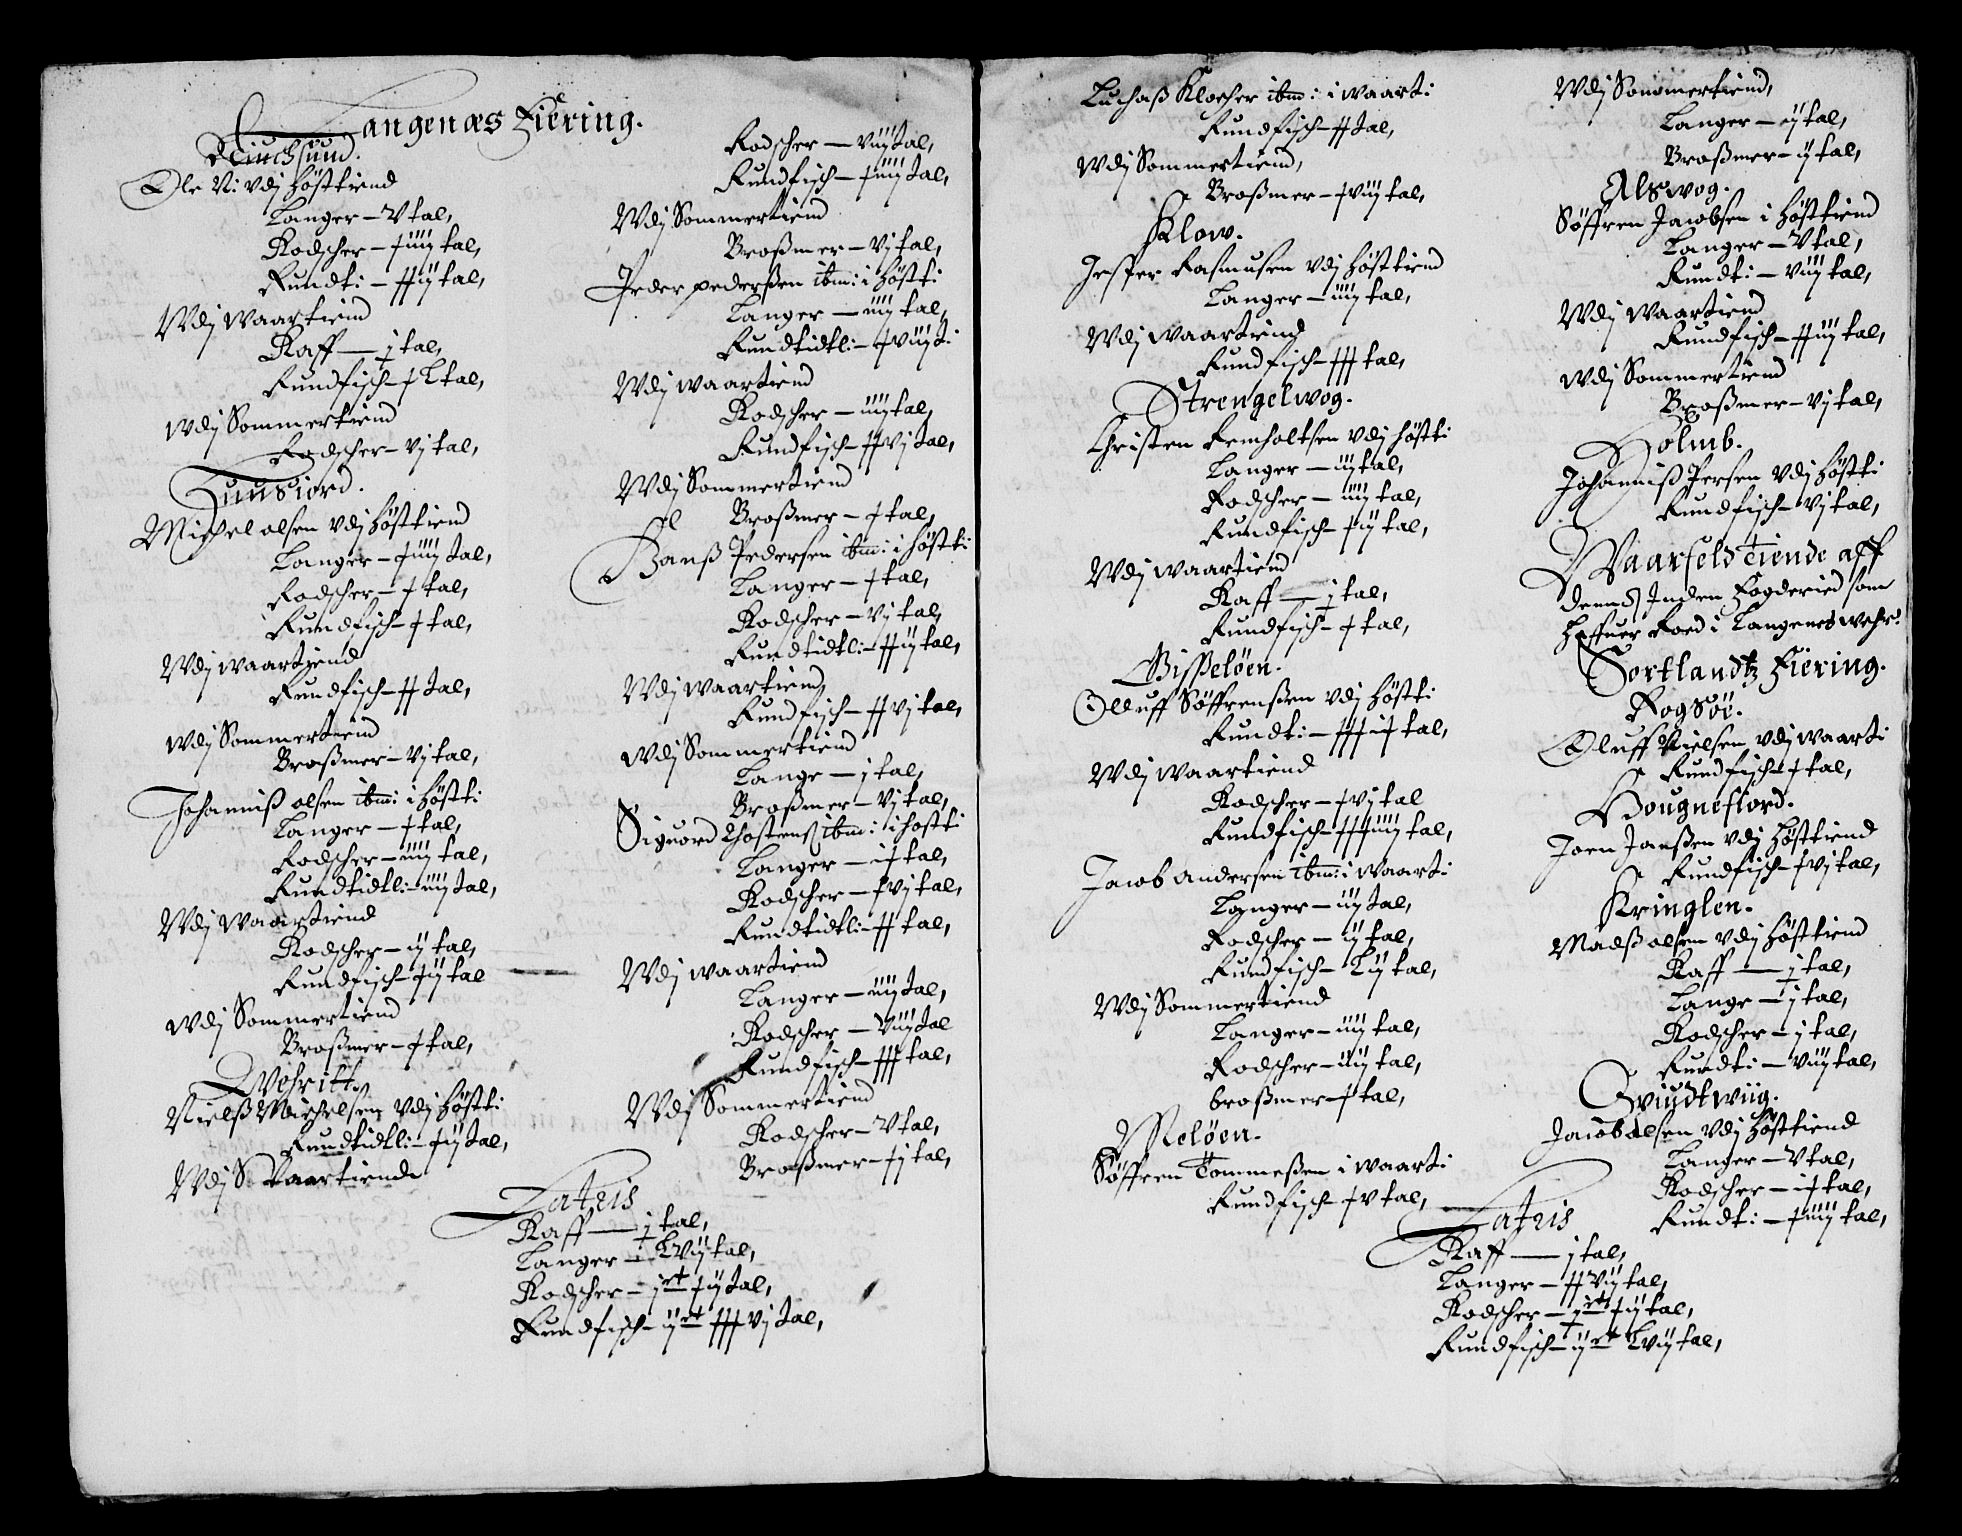 Langenæs Fiering.
Ole N: vdj Høsttiend
Langer – V tal,
Rodscher – ɟiiij tal,
Rundt: – ɟɟij tal,
Wdj Waartiend
Raff – j tal,
Rundfisch – ɟL tal,
Wdj Sommertiend
Rodscher – vj tal,
Michel olsen vdj Høsttiend
Langer – ɟiiij tal,
Rodscher – ɟ tal,
Rundfisch – ɟ tal,
Wdj Waartiend
Rundfisch – ɟɟ tal,
Wdj Sommertiend
Broßmer – vj tal,
Johanniß olsen ibm: i Høstti
Langer – ɟ tal,
Rodscher – iiij tal,
Rundtidtli: – iiij tal,
Wdj Waartiend
Rodscher – ij tal,
Rundfisch – ɟij tal
Wdj Sommertiend
Broßmer – ɟ tal,
Nielß Michelsen vdj Høstti
Rundtidtli: – ɟij tal,
Wdj S Vaartiende
Rodscher – viiij tal,
Rundfisch – ɟiiij tal,
Wdj Sommertiend
Broßmer – vj tal,
Peder pederßen ibm: i Høstti
Langer – iiij tal,
Rundtidtli: – ɟviij t:
Wdj Waartiend
Rodscher – iiij tal,
Rundfisch – ɟɟvj tal,
Wdj Sommertiend
Broßmer – ɟ tal,
Hanß Pedersen ibm: i Høstti
Langer – ɟ tal,
Rodscher – vj tal,
Rundtidtli: – ɟɟij tal,
Wdj Waartiend
Rundfisch – ɟɟvj tal,
Wdj Sommertiend
Lange – j tal,
Broßmer – vj tal,
Siguord ibm: i hostti
Langer – iɟ tal,
Rodscher – ɟvj tal,
Rundtidtli: – ɟɟ tal,
Wdj Waartiend
Langer – iiij tal,
Rodscher – viiij tal
Rundfisch – ɟɟɟ tal,
Wdj Sommertiend
Rodscher – V tal,
Broßmer – ɟj tal,
Latris
Raff – j tal,
Langer – Lviij tal,
Rodscher – j ɟij tal,
Rundfisch – ij ɟɟɟvj tal,
Luchaß Klocher ibm: i waarti
Rundfisch – ɟɟ tal,
Wdj Sommertiend,
Broßmer – ɟviij tal,
Klow.
Jesper Rasmusen vdj Høsttiend
Langer – iiij tal,
Wdj Waartiend
Rundfisch – ɟɟɟ tal,
Strengelwog.
Christen Remholtsen vdj høstti
Langer – iij tal,
Rodscher – iiij tal,
Rundfisch – ɟij tal,
Wdj Waartiend
Raff – j tal,
Rundfisch – ɟ tal,
Gisseløen.
Olluff Søffrenßen vdj Høstti
Rundt: – ɟɟɟiɟ tal,
Wdj Waartiend
Rodscher – ɟvj tal
Rundfisch – ɟɟɟiiij tal,
Jacob andersen ibm: i Waarti
Langer – iij tal,
Rodscher – ij tal,
Rundfisch – Lij tal,
Wdj Sommertiend
Langer – iiij tal,
Rodscher – iiij tal,
broßmer – ɟ tal,
Meløen.
Søffren Tommeßen i waarti
Rundfisch – ɟv tal,
Wdj Sommertiend,
Langer – ij tal,
Broßmer – ij tal,
Alswog.
Søffren Jacobsen i Høsttiend
Langer – V tal,
Rundt: – viij tal,
Wdj Waartiend
Rundfisch – ɟɟiij tal,
Wdj Sommertiend
Broßmer – vj tal,
Holmb.
Johanniß Persen vdj Høstti
Rundfisch – vj tal,
Waarfeld Tiende aff
dennd Inden Fogderied som
Haffuer Roed i Langenes wehr:
Sortlandtz Fiering.
Rogsöe.
Oluff Nielsen vdj waarti
Rundfisch – ɟ tal,
Hougnefiord.
Joen Janßen vdj Høsttiend
Rundfisch – ɟvj tal,
Kringlen.
Madß olsen vdj Høsttiend
Raff – j tal,
Lange – j tal,
Rodscher – j tal,
Rundt: – viij tal,
Qvindtwiig.
Jacob olsen vdj Høsttiend
Langer – V tal,
Rodscher – iɟ tal,
Rundt: – ɟiiij tal,
Latris
Raff – j tal,
Langer – ɟɟviij tal,
Rodscher – j ɟij tal,
Rundfisch – ij Lviij tal,